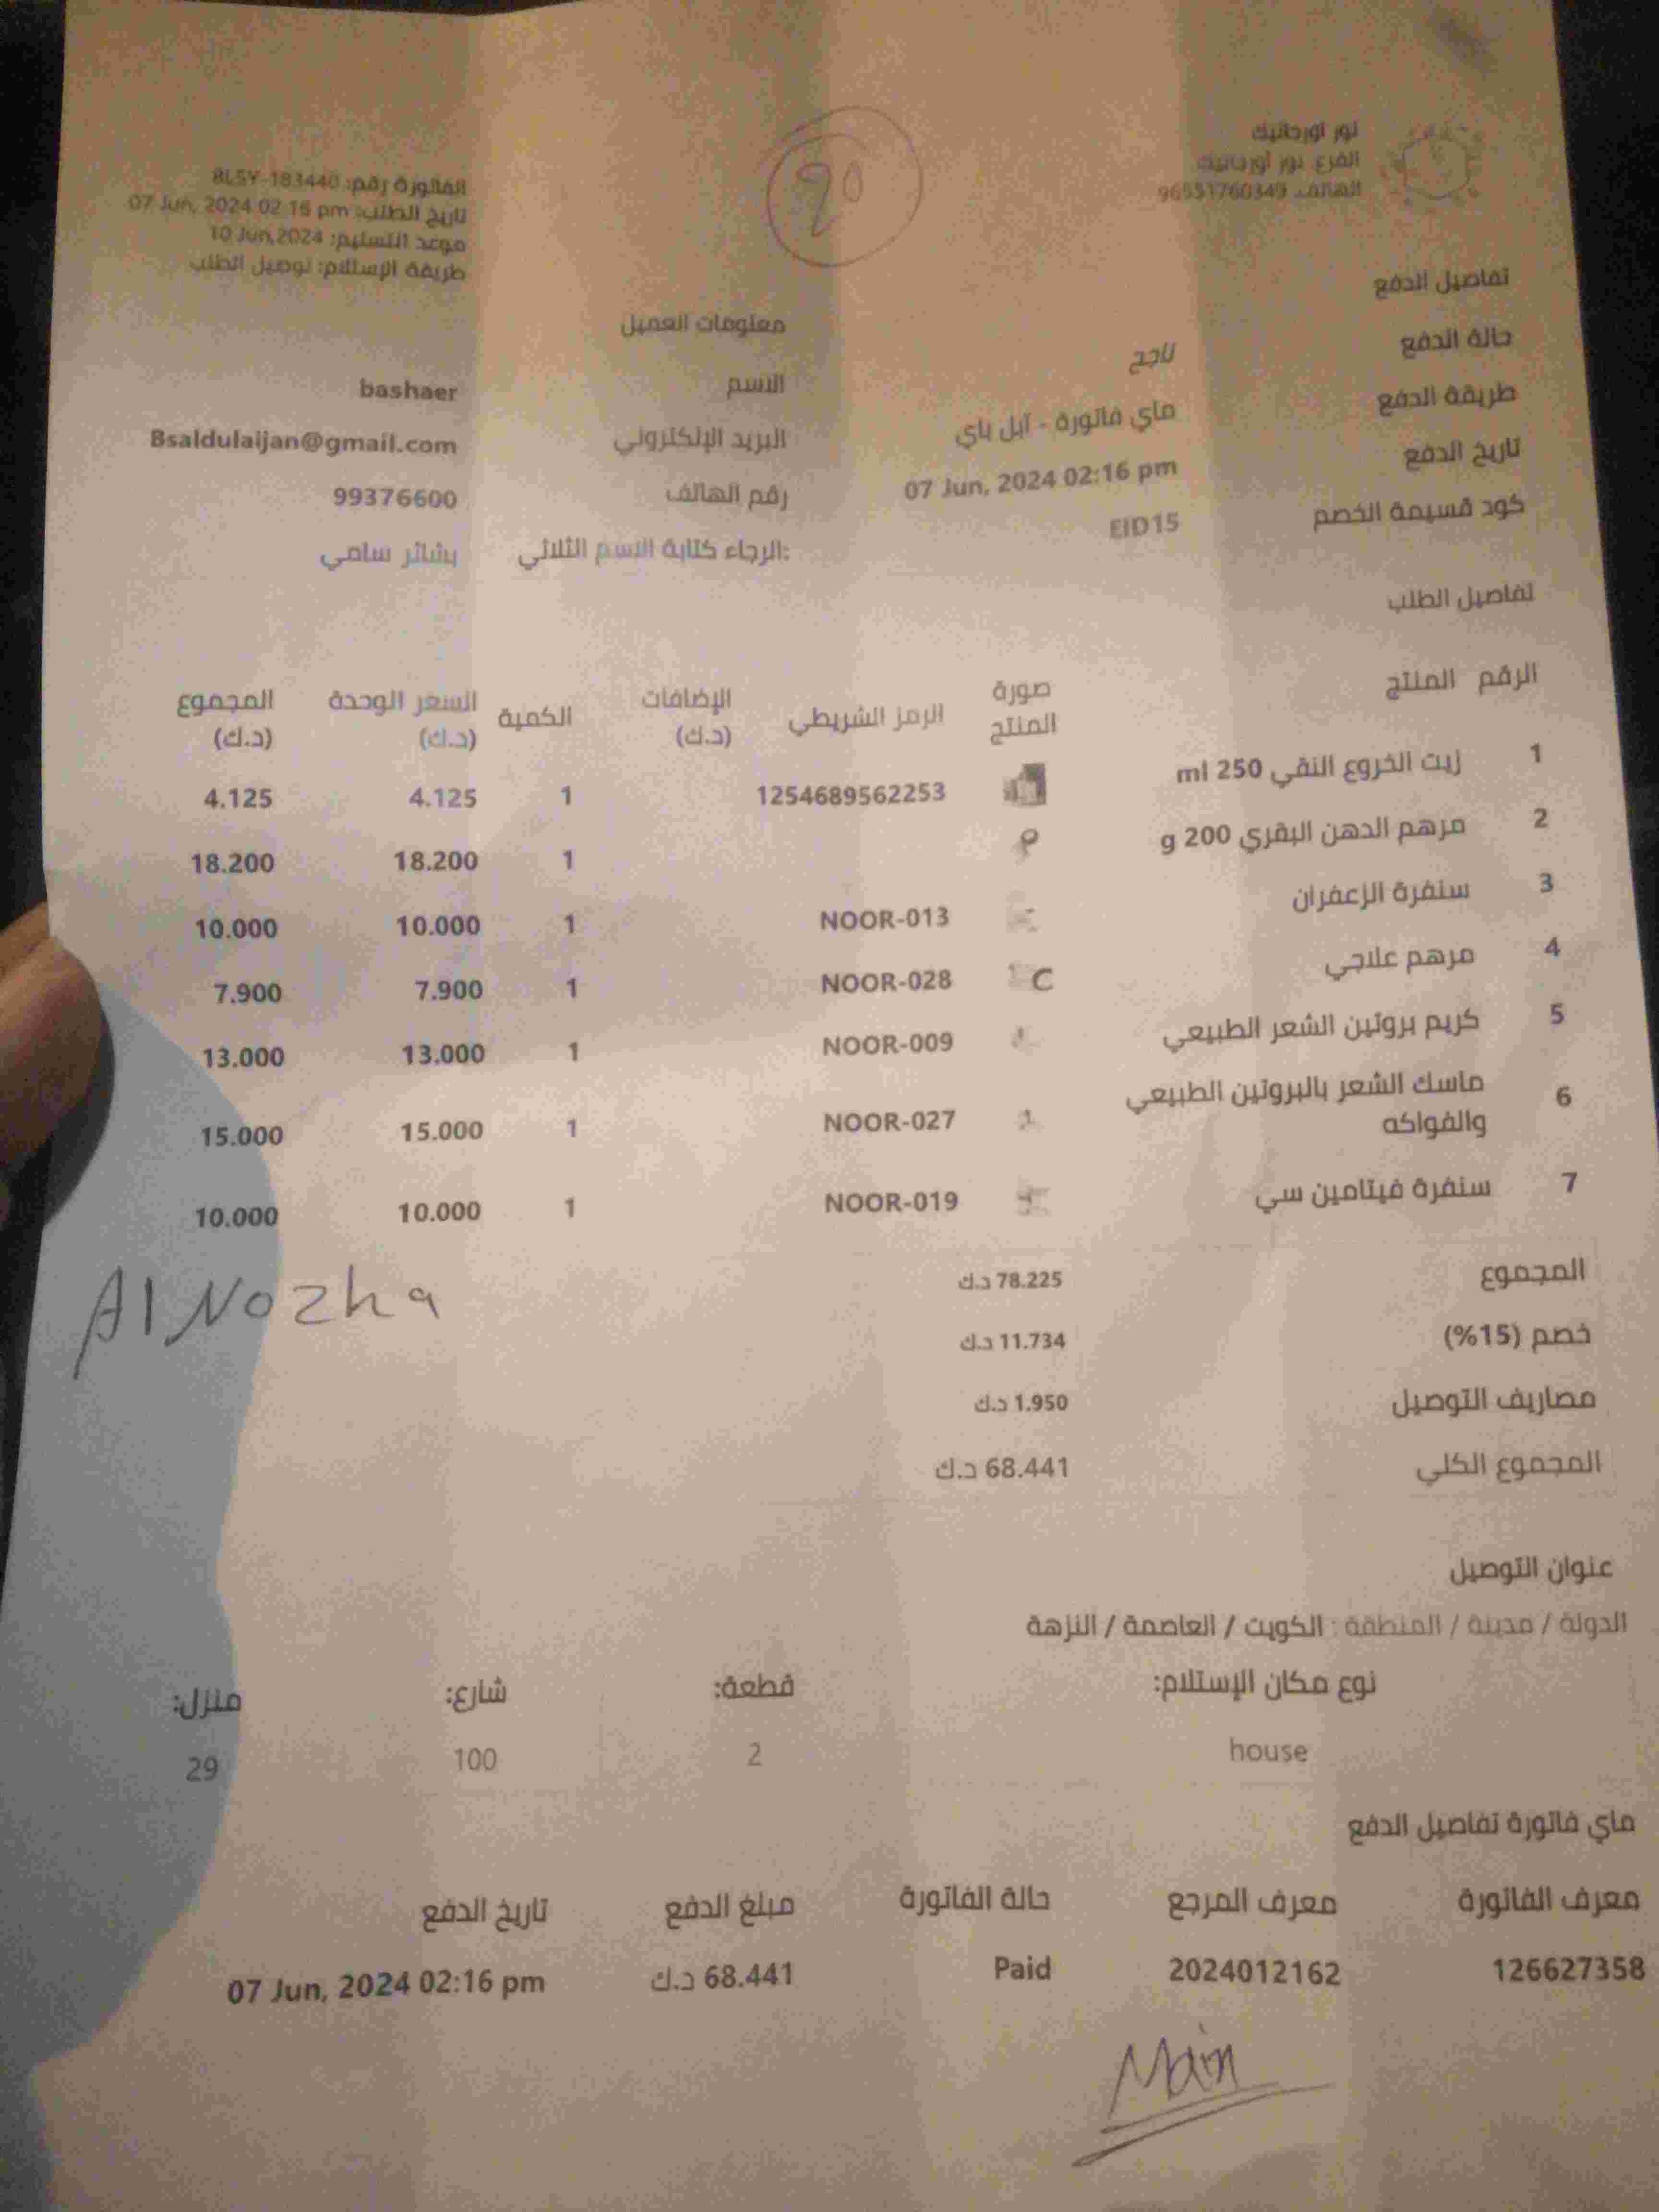 نور اورجانيك
الفرع: نور اورجانيك
الهاتف: 96551760349
90
الفاتورة رقم: BLSY-183440
تاريخ الطلب: 07 Jun, 2024 02:16 pm
موعد التسليم: 10 Jun,2024
طريقة الإستلام: توصيل الطلب
تفاصيل الدفع
حالة الدفع ناجح
طريقة الدفع ماي فاتورة - آبل باي
تاريخ الدفع 07 Jun, 2024 02:16 pm
كود قسيمة الخصم EID15
معلومات العميل
الاسم bashaer
البريد الإلكتروني Bsaldulaijan@gmail.com
رقم الهاتف 99376600
الرجاء كتابة الاسم الثلاثي: بشائر سامي
تفاصيل الطلب
الرقم المنتج صورة المنتج الرمز الشريطي الإضافات (د.ك) الكمية السعر الوحدة (د.ك) المجموع (د.ك)
1 زيت الخروع النقي 250 ml 1254689562253 1 4.125 4.125
2 مرهم الدهن البقري 200 g 1 18.200 18.200
3 سنفرة الزعفران NOOR-013 1 10.000 10.000
4 مرهم علاجي NOOR-028 1 7.900 7.900
5 كريم بروتين الشعر الطبيعي NOOR-009 1 13.000 13.000
6 ماسك الشعر بالبروتين الطبيعي والفواكه NOOR-027 1 15.000 15.000
7 سنفرة فيتامين سي NOOR-019 1 10.000 10.000
المجموع 78.225 د.ك
Al Nozha
خصم (15%) 11.734 د.ك
مصاريف التوصيل 1.950 د.ك
المجموع الكلي 68.441 د.ك
عنوان التوصيل
الدولة / مدينة / المنطقة : الكويت / العاصمة / النزهة
نوع مكان الإستلام: قطعة: شارع: منزل:
house 2 100 29
ماي فاتورة تفاصيل الدفع
معرف الفاتورة معرف المرجع حالة الفاتورة مبلغ الدفع تاريخ الدفع
126627358 2024012162 Paid 68.441 د.ك 07 Jun, 2024 02:16 pm
Main